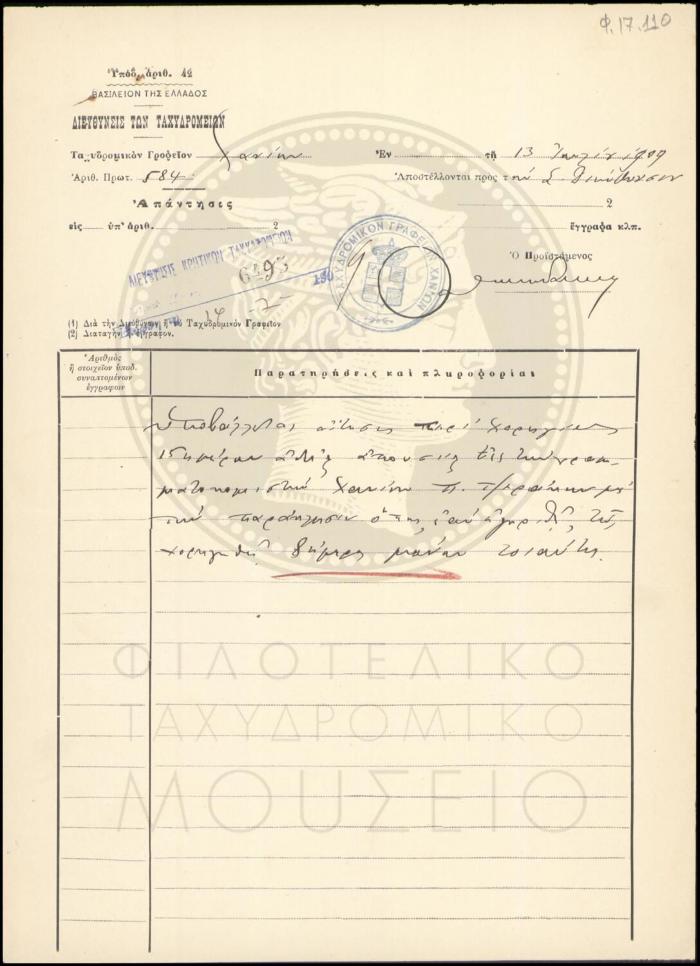 Φ.17.110
Ὑπόδ. ἀριθ. 42
ΒΑΣΙΛΕΙΟΝ ΤΗΣ ΕΛΛΑΔΟΣ
ΔΙΕΥΘΥΝΣΙΣ ΤΩΝ ΤΑΧΥΔΡΟΜΕΙΩΝ
Ταχυδρομικὸν Γροφεῖον Χανίων Ἐν τῇ 13 1909
Ἀριθ. Πρωτ. 584 Ἀποστέλλονται πρὸς τὴν Σ. Διεύθυνσιν
Ἀπάντησες 2
εἰς ὑπ' ἀριθ. 2 ἔγγραφα κλπ.
Ὁ Προϊστάμενος
ΔΙΕΥΘΥΝΣΙΣ ΚΡΗΤΙΚΩΝ ΤΑΧΥΔΡΟΜΕΙΩΝ
6293
190
14 -7-
ΤΑΧΥΔΡΟΜΙΚΟΝ ΓΡΑΦΕΙΟΝ ΧΑΝΙΩΝ
(1) Διὰ τὴν Διεύθυνσιν ἢ τὸ Ταχυδρομικὸν Γραφεῖον
(2) Διαταγὴ ἢ ἔγγραφον.
Ἀριθμὸς
ἢ στοιχεῖον ὑποδ.
συναπτομένων
ἐγγραφων
Παρατηρήσεις καὶ πληροφορίαι
Ὑποβάλλεται αἴτησις περὶ χορηγήσεως
15ημέρου ἀδείας ἀπουσίας
Χανίων
τὴν παράκλησιν ὅπως, ἐὰν ἐγκριθῇ, τῷ
χορηγηθῇ 8ήμερος μόνον τοιαύτη.
ΦΙΛΟΤΕΛΙΚΟ
ΤΑΧΥΔΡΟΜΙΚΟ
ΜΟΥΣΕΙΟ